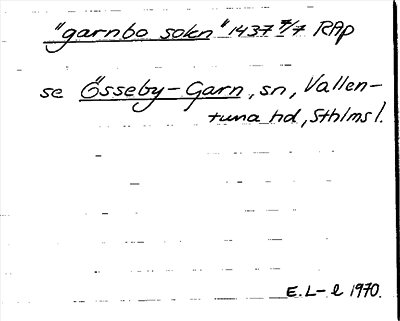 "garnbo sokn" 1437 7/7 RAp
se Össeby-Garn, sn, Vallen-
tuna hd, Sthlms l.
E.L-l 1970.